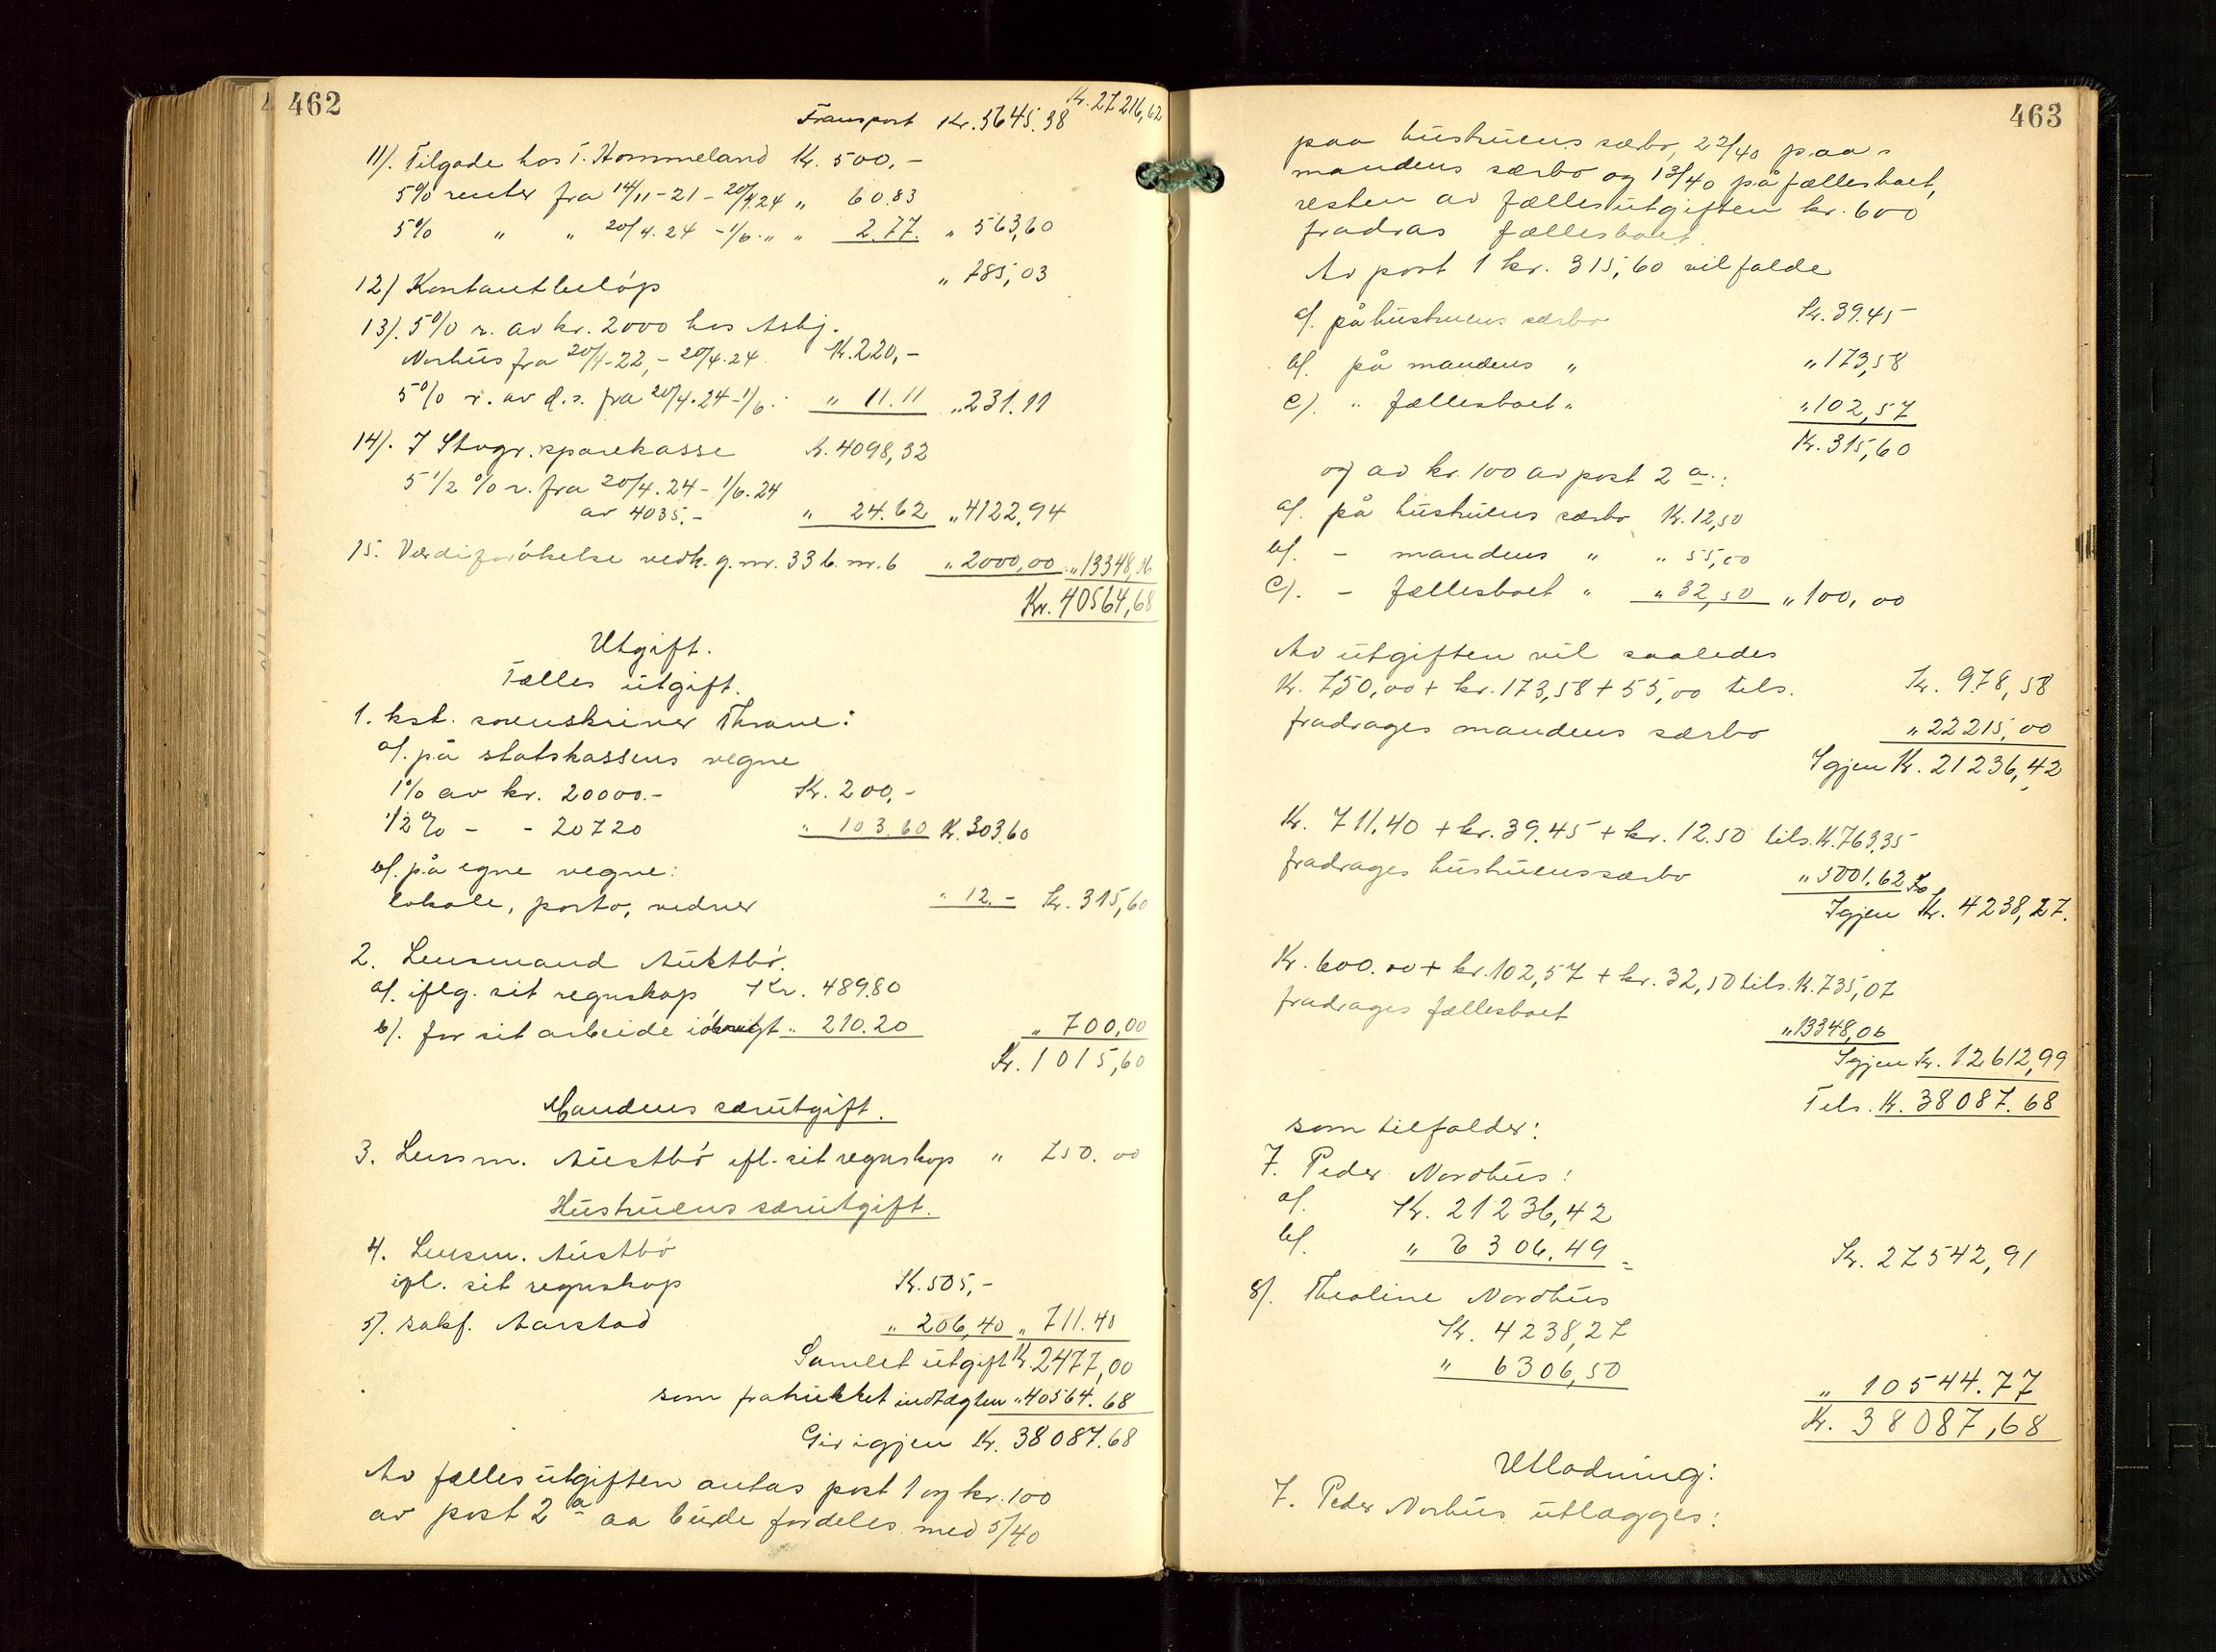 462
Transport Kr. 5645.38 Kr. 27216,62
11). Tilgode hos T. Hommeland Kr. 500,-
5% renter fra 14/11-21 - 20/4.24 " 60.83
5% " " 20/4.24 - 1/6 " " 2.77. " 563,60
12) Kontantbeløp " 785,03
13). 5% r. av kr. 2000 hos Asbj.
Norhus fra 20/1-22, - 20/4.24 Kr. 220,-
5% r. av d.s. fra 20/4.24 - 1/6. " 11.11 " 231.11
14). I Stvgr. sparekasse K. 4098,32
5 1/2 % r. fra 20/4.24 - 1/6.24
av 4035.- " 24.62 " 4122,94
15. Værdiforøkelse vedk. g.nr. 33 b.nr. 6 " 2000,00 " 13348,06
Kr. 40564,68
Utgift.
Fælles utgift.
1. kst. sorenskriver Thrane:
a/. på statskassens vegne
1% av kr. 20000.- Kr. 200,-
1/2 % - - 20720 " 103.60 K. 303.60
b/. på egne vegne:
lokale, porto, vedner " 12.- Kr. 315,60
2. Lensmand Austbø.
a/. iflg. sit regnskap Kr. 489.80
b/. for sit arbeide iøvrigt " 210.20 " 700,00
Kr. 1015,60
Mandens særutgift.
3. Lensm. Austbø ifl. sit regnskap " 750.00
Hustruens særutgift.
4. Lensm. Austbø
ifl. sit regnskap K. 505,-
5/. sakf. Aarstad " 206,40 " 711.40
Samlet utgift K. 2477,00
som fratrukket indtægten " 40564.68
Gir igjen K. 38087.68
Av fællesutgiften antas post 1 og kr. 100
av post 2 a aa burde fordeles med 5/40
463
paa hustruens særbo, 22/40 paa
mandens særbo og 13/40 på fællesboet,
resten av fællesutgiften kr. 600
fradras fællesboet.
Av post 1 kr. 315,60 vil falde
a/. på hustruens særbo Kr. 39.45
b/. på mandens " " 173,58
c/. " fællesboet " " 102,57
Kr. 315,60
og av kr. 100 av post 2 a.:
a/. på hustruens særbo K. 12,50
b/. - mandens " " 55,00
c/. - fællesboet " " 32,50 " 100,00
Av utgiften vil saaledes
K. 750,00 + kr. 173,58 + 55,00 tils. Kr. 978,58
fradrages mandens særbo " 22215,00
Igjen K. 21236,42
Kr. 711.40 + kr. 39.45 + kr. 12.50 tils. K. 763.35
fradrages hustruens særbo " 5001.62
Igjen Kr. 4238,27.
Kr. 600.00 + kr. 102,57 + kr. 32,50 tils. K. 735,07
fradrages fællesboet " 13348,06
Igjen Kr. 12612,99
Tils. K. 38087.68
som tilfalder:
7. Peder Nordhus:
a/. Kr. 21236,42
b/. " 6306,49 = Kr. 27542,91
8/. Thealine Nordhus
Kr. 4238,27
" 6306,50 " 10544.77
Kr. 38087,68
Utlodning:
7. Peder Norhus utlægges: